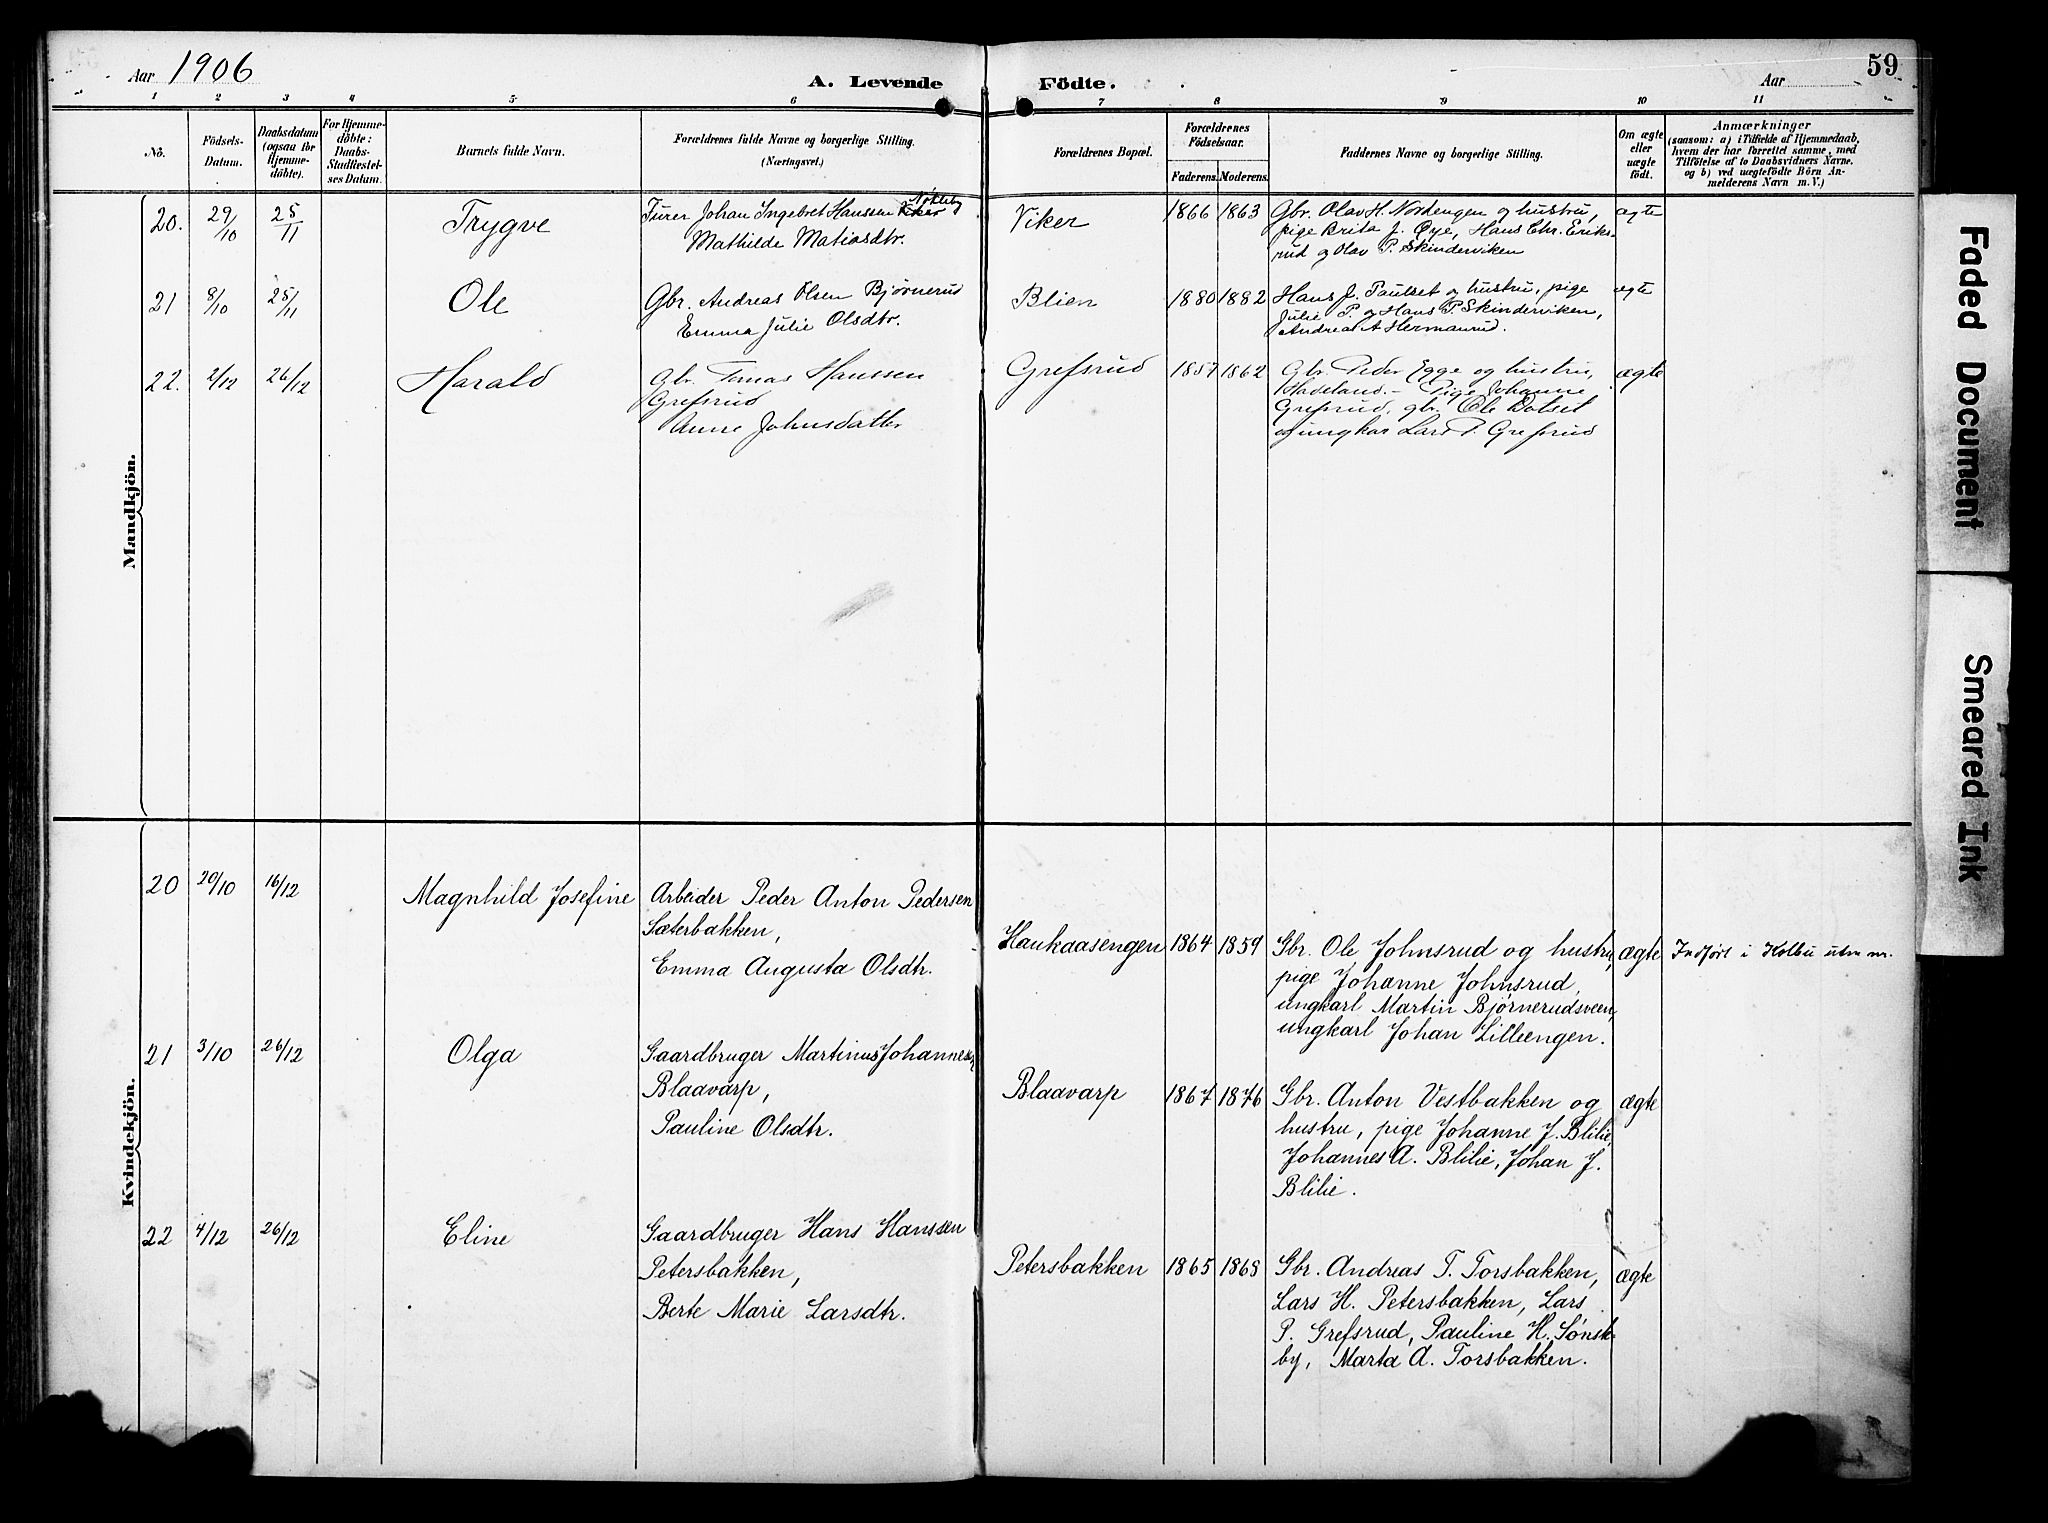 Aar 1906
A. Levende Födte.
Aar
59
1 2 3 4 5 6 7 8 9 10 11
No.
Födsels-
Datum.
Daabsdatum
(ogsaa for
Hjemme-
döbte).
For Hjemme-
döbte:
Daabs-
Stadfæstel-
ses Datum.
Barnets fulde Navn.
Forældrenes fulde Navne og borgerlige Stilling.
(Næringsvei.)
Forældrenes Bopæl.
Forældrenes
Födselsaar.
Faderens. Moderens.
Faddernes Navne og borgerlige Stilling.
Om ægte
eller
uægte
födt.
Anmærkninger
(saasom: a) i Tilfælde af Hjemmedaab,
hvem der har forrettet samme, med
Tilföielse af to Daabsvidners Navne.
og b) ved uægtefödte Börn An-
melderens Navn m. V.)
Mandkjön.
20. 29/10 25/11 Trygve
Johan Ingebret Hanssen Viker
Mathilde Matiasdtr.
Viker 1866 1863
Gbr. Olav H. Nordengen og hustru,
pige Brita J. Øye, Hans Chr. Eriks-
rud og Olav P. Skinderviken
ægte
21 8/10 25/11 Ole
Gbr. Andreas Olsen Bjørnerud
Emma Julie Olsdtr.
Blien 1880 1882
Hans J. Paulset og hustru, pige
Julie P. og Hans P. Skinderviken,
Andreas A Hermanrud.
ægte
22. 2/12 26/12 Harald
Gbr. Tomas Hanssen
Grefsrud
Anne Johnsdatter
Grefsrud 1857 1862
Gbr. Peder Egge og hustru,
Hadeland. - Pige Johanne
Grefsrud, gbr. Ole Dotset
og ungkar Lars P. Grefsrud
ægte
Kvindekjön.
20 20/10 16/12 Magnhild Josefine
Arbeider Peder Anton Pedersen
Sæterbakken,
Emma Augusta Olsdtr.
Haukaasengen 1864 1859
Gbr. Ole Johnsrud og hustru,
pige Johanne Johnsrud,
ungkarl Martin Bjørnerudsveen,
ungkarl Johan Lilleengen.
ægte
Indført i Kolbu uten nr.
21 3/10 26/12 Olga
Gaardbruger Martinus Johannesen
Blaavarp,
Pauline Olsdtr.
Blaavarp 1867 1876
Gbr. Anton Vestbakken og
hustru, pige Johanne J. Blilie,
Johannes A. Blilie, Johan J.
Blilie.
ægte
22 4/12 26/12 Eline
Gaardbruger Hans Hanssen
Petersbakken,
Berte Marie Larsdtr.
Petersbakken 1865 1868
Gbr. Andreas T. Torsbakken,
Lars H. Petersbakken, Lars
P. Grefsrud, Pauline H. Sønste-
by, Marta A. Torsbakken.
ægte
Faded Document
Smeared Ink